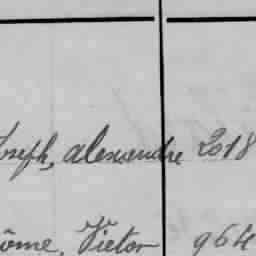 Joseph, alexandre 2018
ôme, Victor 964